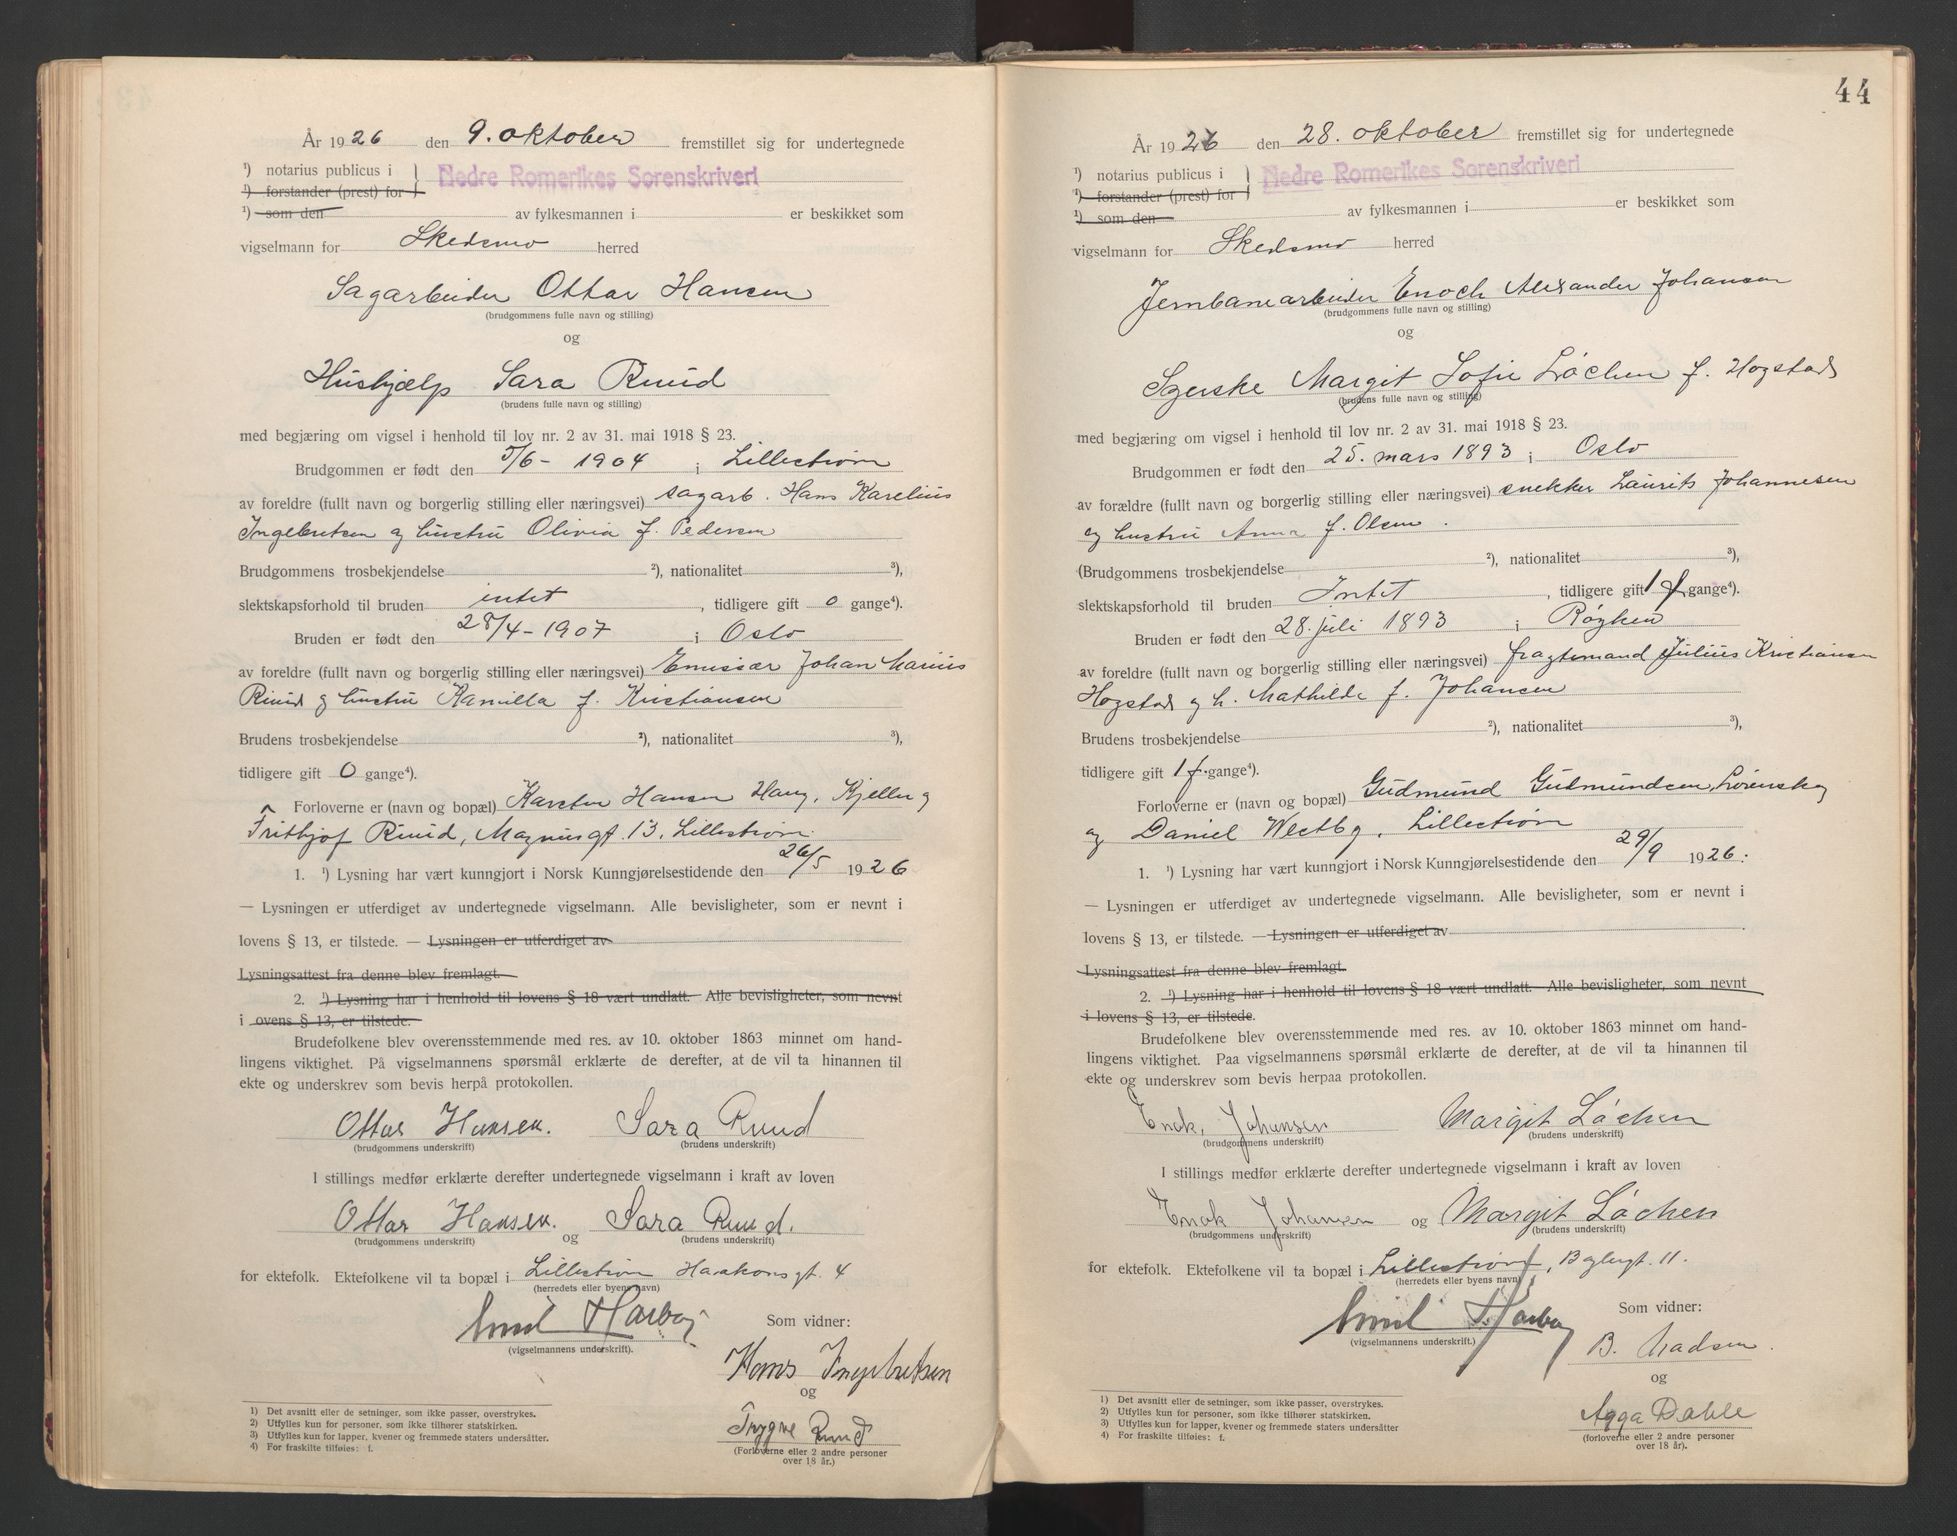 År 1926 den 9. oktober fremstillet sig for undertegnede
¹) notarius publicus i } Nedre Romerikes Sorenskriveri
¹) forstander (prest) for
¹) som den av fylkesmannen i er beskikket som
vigselmann for Skedsmo herred
Sagarbeider Ottar Hansen
(brudgommens fulle navn og stilling)
og
Hushjælp Sara Ruud
(brudens fulle navn og stilling)
med begjæring om vigsel i henhold til lov nr. 2 av 31. mai 1918 § 23.
Brudgommen er født den 5/6 - 1904 i Lillestrøm
av foreldre (fullt navn og borgerlig stilling eller næringsvei) sagarb. Hans Karelius
Ingebretsen og hustru Olivia f. Pedersen
Brudgommens trosbekjendelse ²), nationalitet ³),
slektskapsforhold til bruden intet, tidligere gift 0 gange⁴).
Bruden er født den 28/4 - 1907 i Oslo
av foreldre (fullt navn og borgerlig stilling eller næringsvei) Emissær Johan Marius
Ruud og hustru Kamilla f. Kristiansen
Brudens trosbekjendelse ²), nationalitet ³),
tidligere gift 0 gange⁴).
Forloverne er (navn og bopæl) Karsten Hansen Haug, Kjeller og
Frithjof Ruud, Magnusgt. 13, Lillestrøm.
1. ¹) Lysning har vært kunngjort i Norsk Kunngjørelsestidende den 26/5 1926
— Lysningen er utferdiget av undertegnede vigselmann. Alle bevisligheter, som er nevnt i
lovens § 13, er tilstede. — Lysningen er utferdiget av
Lysningsattest fra denne blev fremlagt.
2. ¹) Lysning har i henhold til lovens § 18 vært undlatt. Alle bevisligheter, som nevnt
i ovens § 13, er tilstede.
Brudefolkene blev overensstemmende med res. av 10. oktober 1863 minnet om hand-
lingens viktighet. På vigselmannens spørsmål erklærte de derefter, at de vil ta hinannen til
ekte og underskrev som bevis herpå protokollen.
Ottar Hansen. Sara Ruud
(brudgommens underskrift) (brudens underskrift)
I stillings medfør erklærte derefter undertegnede vigselmann i kraft av loven
Ottar Hansen. og Sara Ruud.
(brudgommens underskrift) (brudens underskrift)
for ektefolk. Ektefolkene vil ta bopæl i Lillestrøm Haakonsgt. 4
(herredets eller byens navn)
Emil Harboy
(vigselmannens underskrift).
Som vidner:
Hans Ingebretsen
og
Trygve Ruud
(Forloverne eller 2 andre personer
over 18 år.)
1) Det avsnitt eller de setninger, som ikke passer, overstrykes.
2) Utfylles kun for personer, som ikke tilhører statskirken.
3) Utfylles kun for lapper, kvener og fremmede staters undersåtter.
4) For fraskilte tilføies: f.
44
År 1926 den 28. oktober fremstillet sig for undertegnede
¹) notarius publicus i } Nedre Romerikes Sorenskriveri
¹) forstander (prest) for
¹) som den av fylkesmannen i er beskikket som
vigselmann for Skedsmo herred
Jernbanearbeider Enoch Alexander Johansen
(brudgommens fulle navn og stilling)
og
Syerske Margit Sofie Løchen f. Hogstad
(brudens fulle navn og stilling)
med begjæring om vigsel i henhold til lov nr. 2 av 31. mai 1918 § 23.
Brudgommen er født den 25. mars 1893 i Oslo
av forældre (fullt navn og borgerlig stilling eller næringsvei) snekker Laurits Johannesen
og hustru Anna f. Olsen.
(Brudgommens trosbekjendelse ²), nationalitet ³),
slektskapsforhold til bruden Intet, tidligere gift 1 f gange⁴).
Bruden er født den 28. juli 1893 i Røyken
av foreldre (fullt navn og borgerlig stilling eller næringsvei) fragtemand Julius Kristiansen
Hogstad og h. Mathilde f. Johansen
Brudens trosbekjendelse ²), nationalitet ³),
tidligere gift 1 f. gange⁴).
Forloverne er (navn og bopæl) Gudmund Gudmundsen, Lørenskog
og Daniel Westby, Lillestrøm
1. ¹) Lysning har vært kunngjort i Norsk Kunngjørelsestidende den 29/9 1926.
— Lysningen er utferdiget av undertegnede vigselmann. Alle bevisligheter, som er nevnt i
lovens § 13, er tilstede. — Lysningen er utferdiget av
Lysningsattest fra denne blev fremlagt.
2. ¹) Lysning har i henhold til lovens § 18 vært undlatt. Alle bevisligheter, som nevnt
i lovens § 13, er tilstede.
Brudefolkene blev overensstemmende med res. av 10. oktober 1863 minnet om hand-
lingens viktighet. Paa vigselmannens spørsmål erklærte de derefter, at de vil ta hinannen til
ekte og underskrev som bevis herpaa protokollen.
Enok, Johansen Margit Løchen
(brudgommens underskrift) (brudens underskrift)
I stillings medfør erklærte derefter undertegnede vigselmann i kraft av loven
Enok Johansen og Margit Løchen
(brudgommens underskrift) (brudens underskrift)
for ektefolk. Ektefolkene vil ta bopæl i Lillestrøm, Baglergt. 11.
(herredets eller byens navn)
Emil Harboy
(vigselmannens underskrift.)
Som vidner:
B. Madsen.
og
Agga Dahle
(forloverne eller 2 andre personer
over 18 år).
1) Det avsnitt eller de setninger, som ikke passer, overstrykes.
2) Utfylles kun for personer, som ikke tilhører statskirken.
3) Utfylles kun for lapper, kvener og fremmede staters undersåtter
4) For fraskilte tilføies: f.